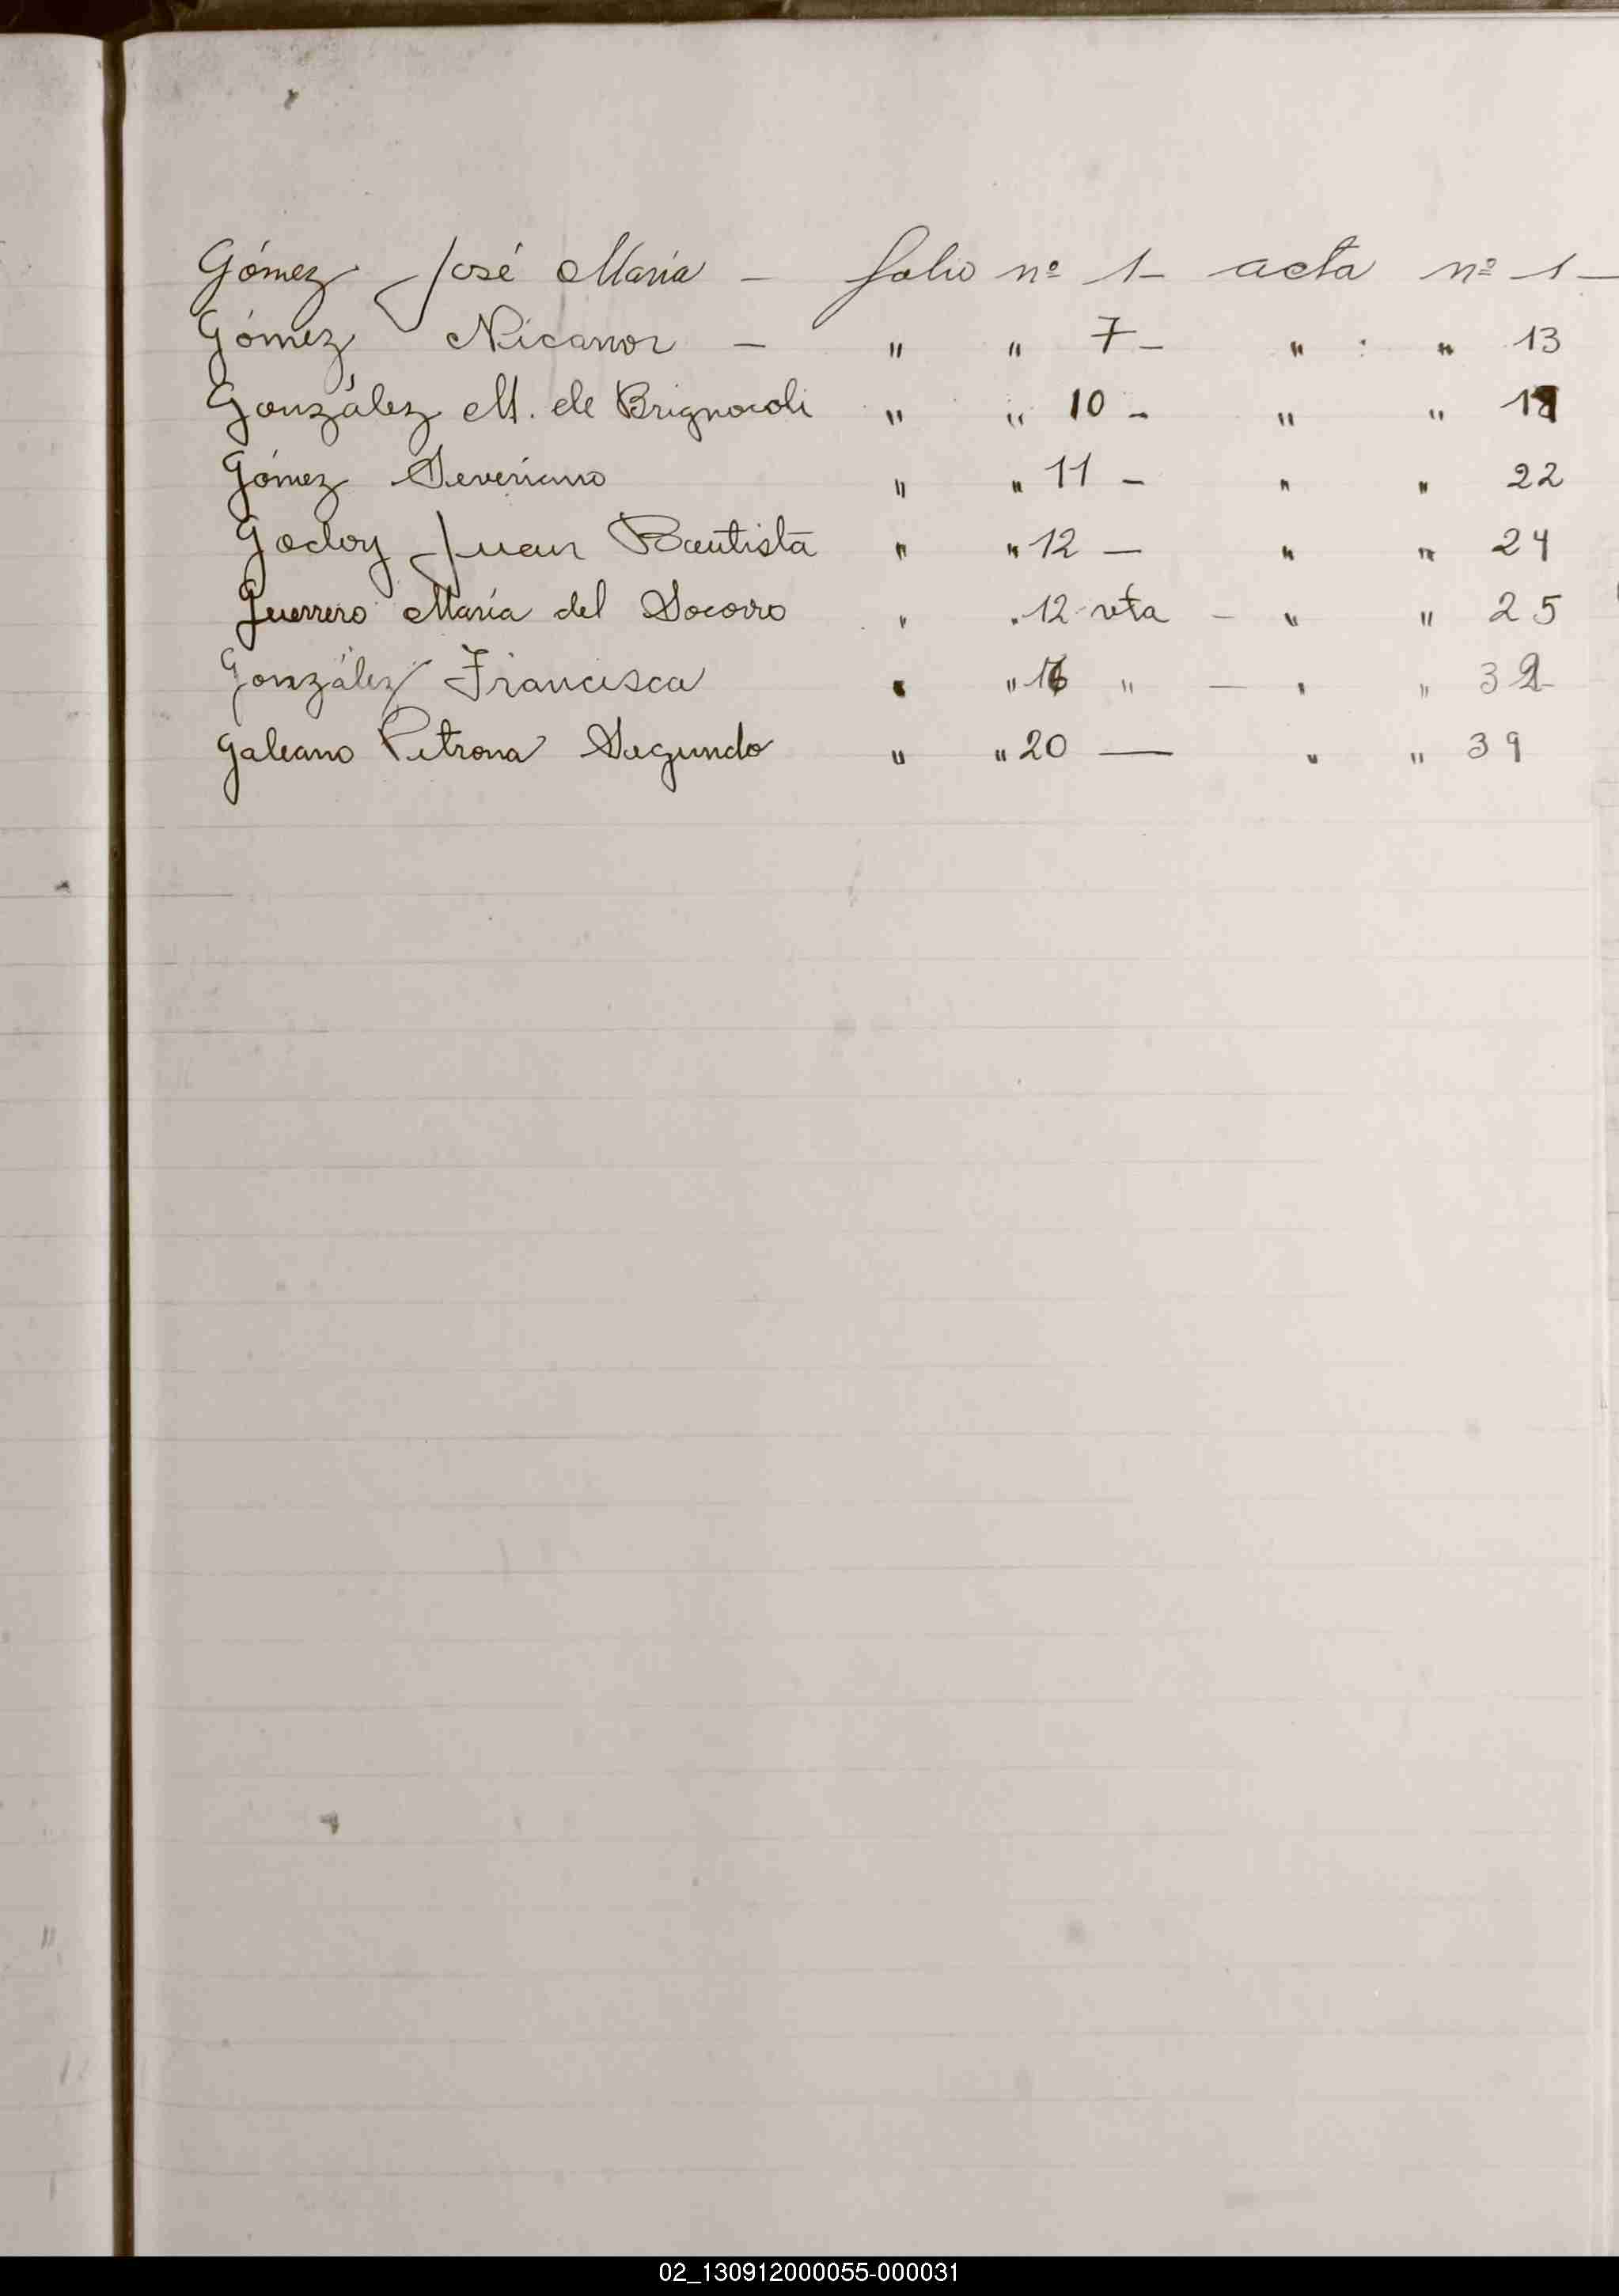 Gómez José María — folio nº 1 — acta nº 1 —
Gómez Nicanor — " " 7 — " : " 13
González M. de Brignocoli " " 10 — " "
Gómez Severiano " " 11 — " " 22
Godoy Juan Bautista " " 12 — " " 24
Guerrero María del Socorro " " 12 vta — " " 25
González Francisca " " 16 " — " " 32
Galeano Petrona Segundo " " 20 — " " 39
02_130912000055-000031